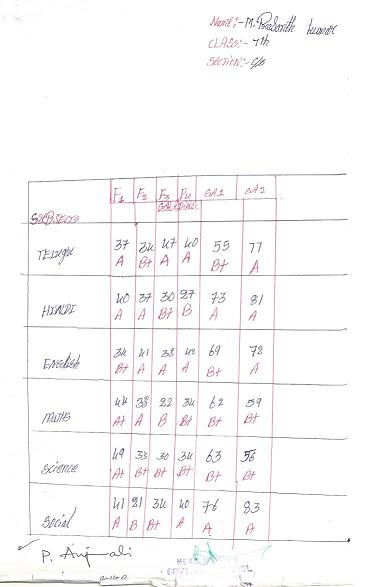 Name:- M. Prashanth kumar
CLASS:- 7th
SECTION:-
F1 F2 F3 F4 SA1 SA2
SUBJECTS
TELUGU 37 34 47 40 55 77
A B+ A A B+ A
HINDI 40 37 30 27 73 81
A A B+ B A A
English 34 41 38 42 69 72
B+ A A A B+ A
MATHS 44 38 22 34 62 59
A+ A B B+ B+ B+
Science 49 33 30 34 63 56
A+ B+ B+ B+ B+ B+
Social 41 21 34 40 76 83
A B B+ A A A
P. Anjali